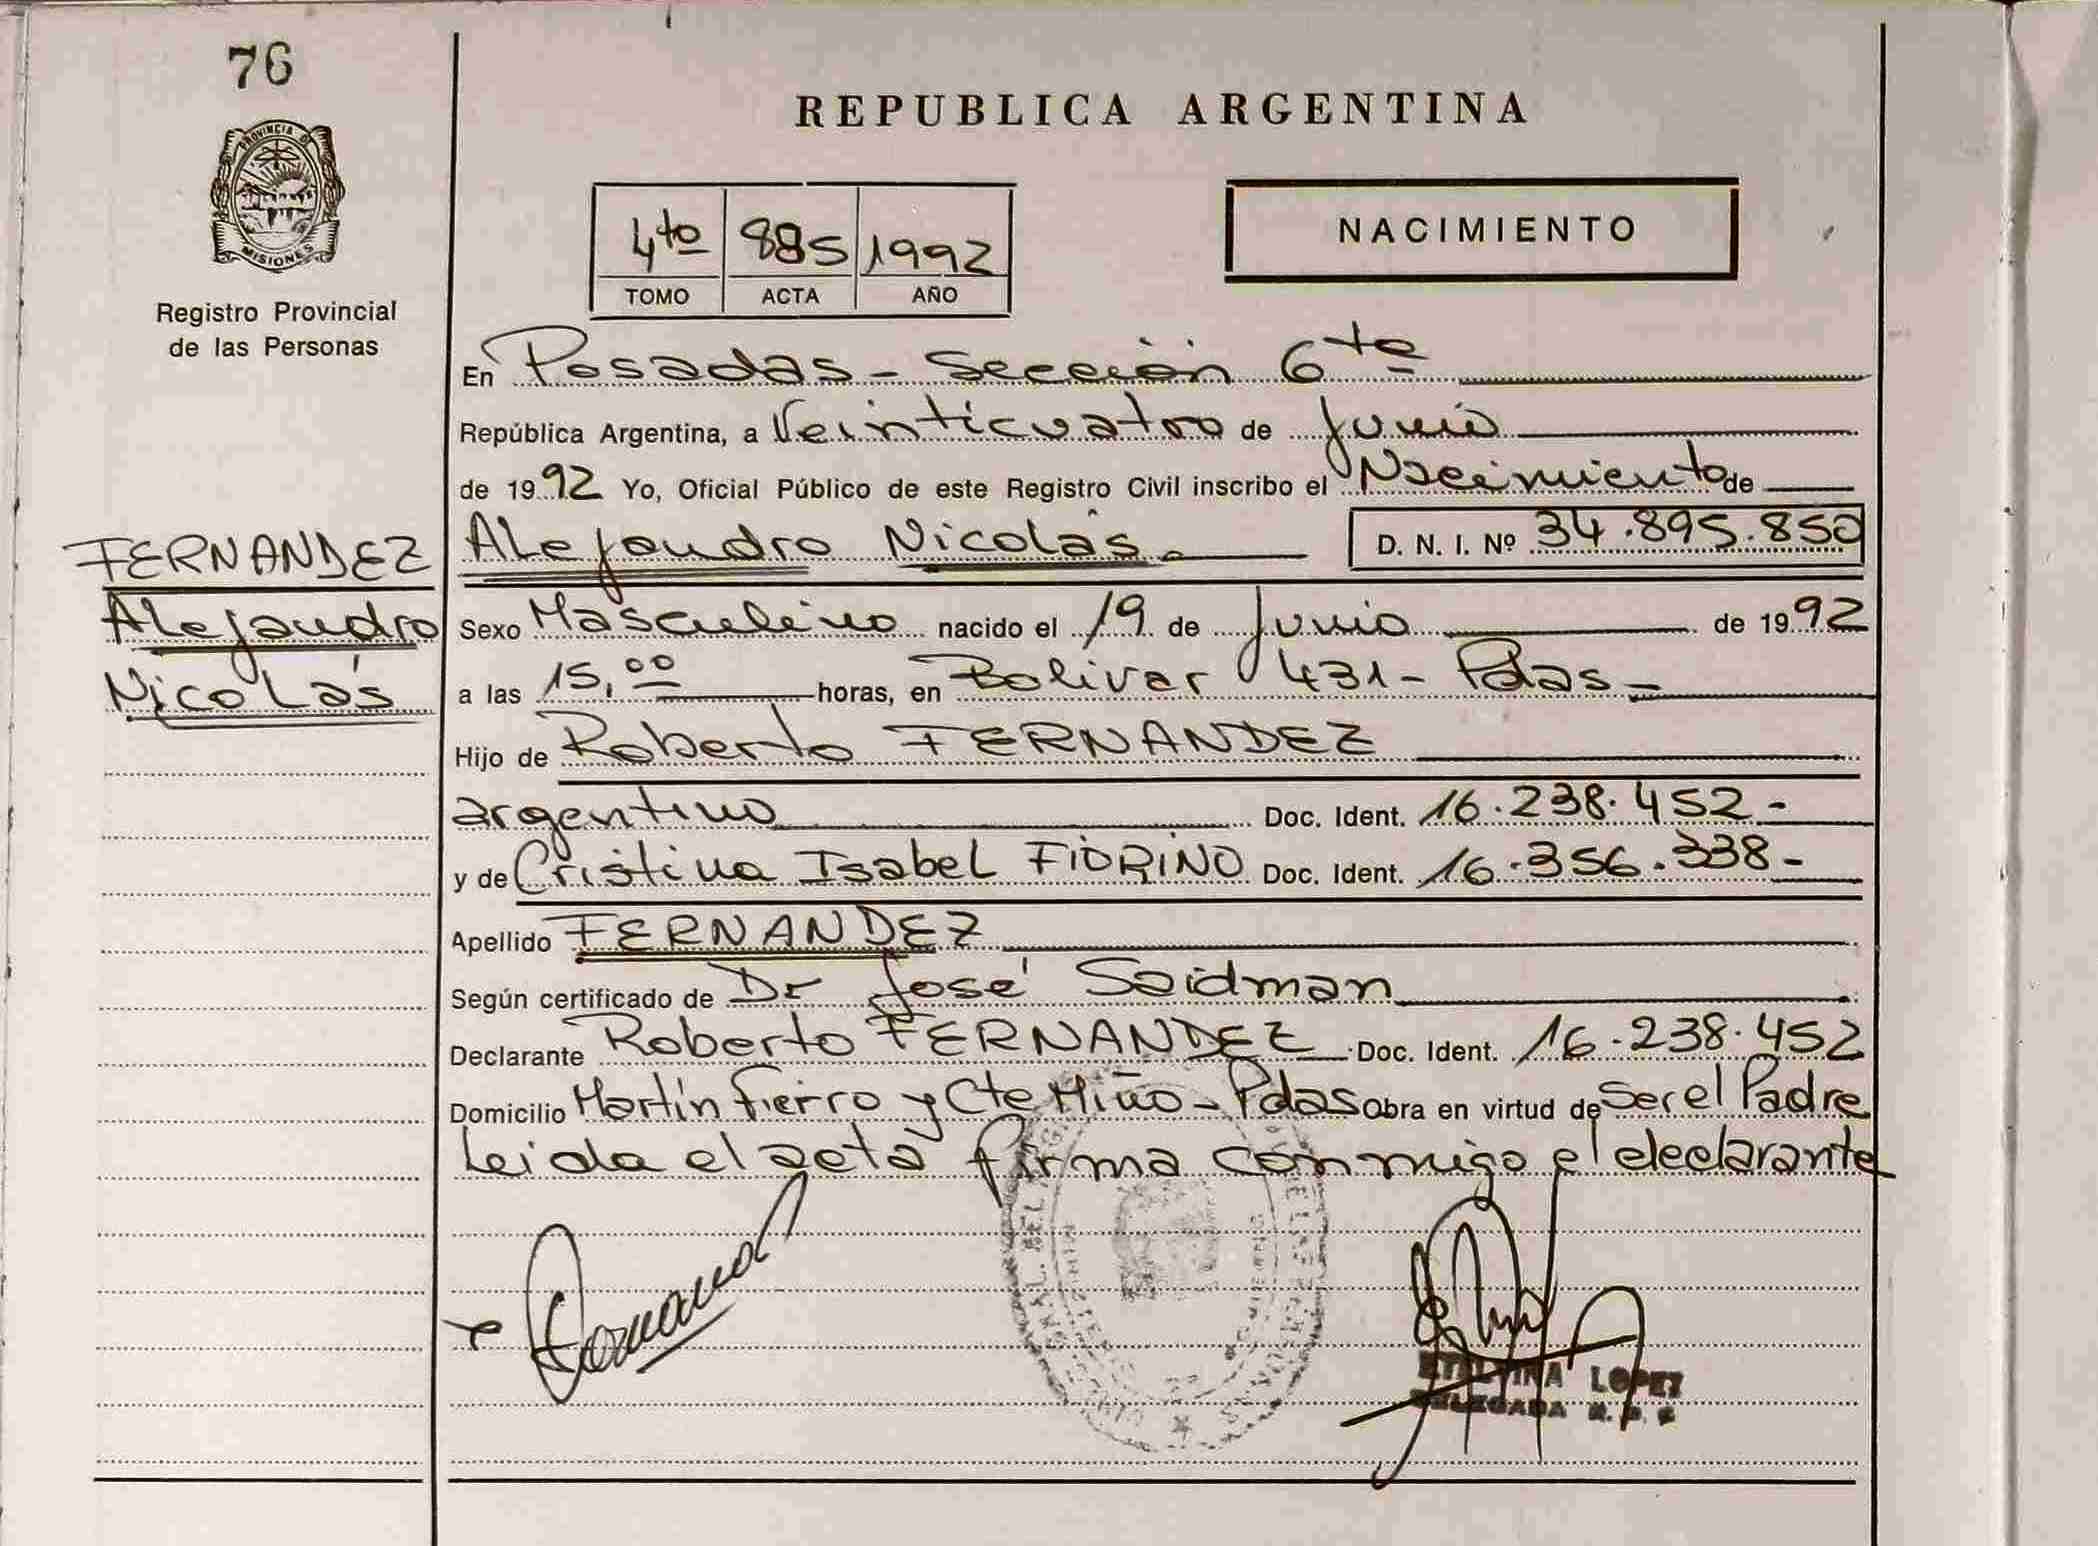 76
PROVINCIA DE
MISIONES
Registro Provincial
de las Personas
REPUBLICA ARGENTINA
4to 885 1992
TOMO ACTA AÑO
NACIMIENTO
En Posadas - Sección 6ta
República Argentina, a Veinticuatro de Junio
de 1992 Yo, Oficial Público de este Registro Civil inscribo el Nacimiento de
FERNANDEZ
Alejandro
Nicolás
Alejandro Nicolás.- D. N. I. Nº 34.895.850
Sexo Masculino nacido el 19 de Junio de 1992
a las 15,00 horas, en Bolivar 431 - Pdas -
Hijo de Roberto FERNANDEZ
argentino Doc. Ident. 16.238.452-
y de Cristina Isabel FIORINO Doc. Ident. 16.356.338-
Apellido FERNANDEZ
Según certificado de Dr José Saidman
Declarante Roberto FERNANDEZ Doc. Ident. 16.238.452
Domicilio Martín Fierro y Cte Miño - Pdas Obra en virtud de Ser el Padre
Leida el acta firma conmigo el declarante
ETELVINA LOPEZ
DELEGADA R. P.